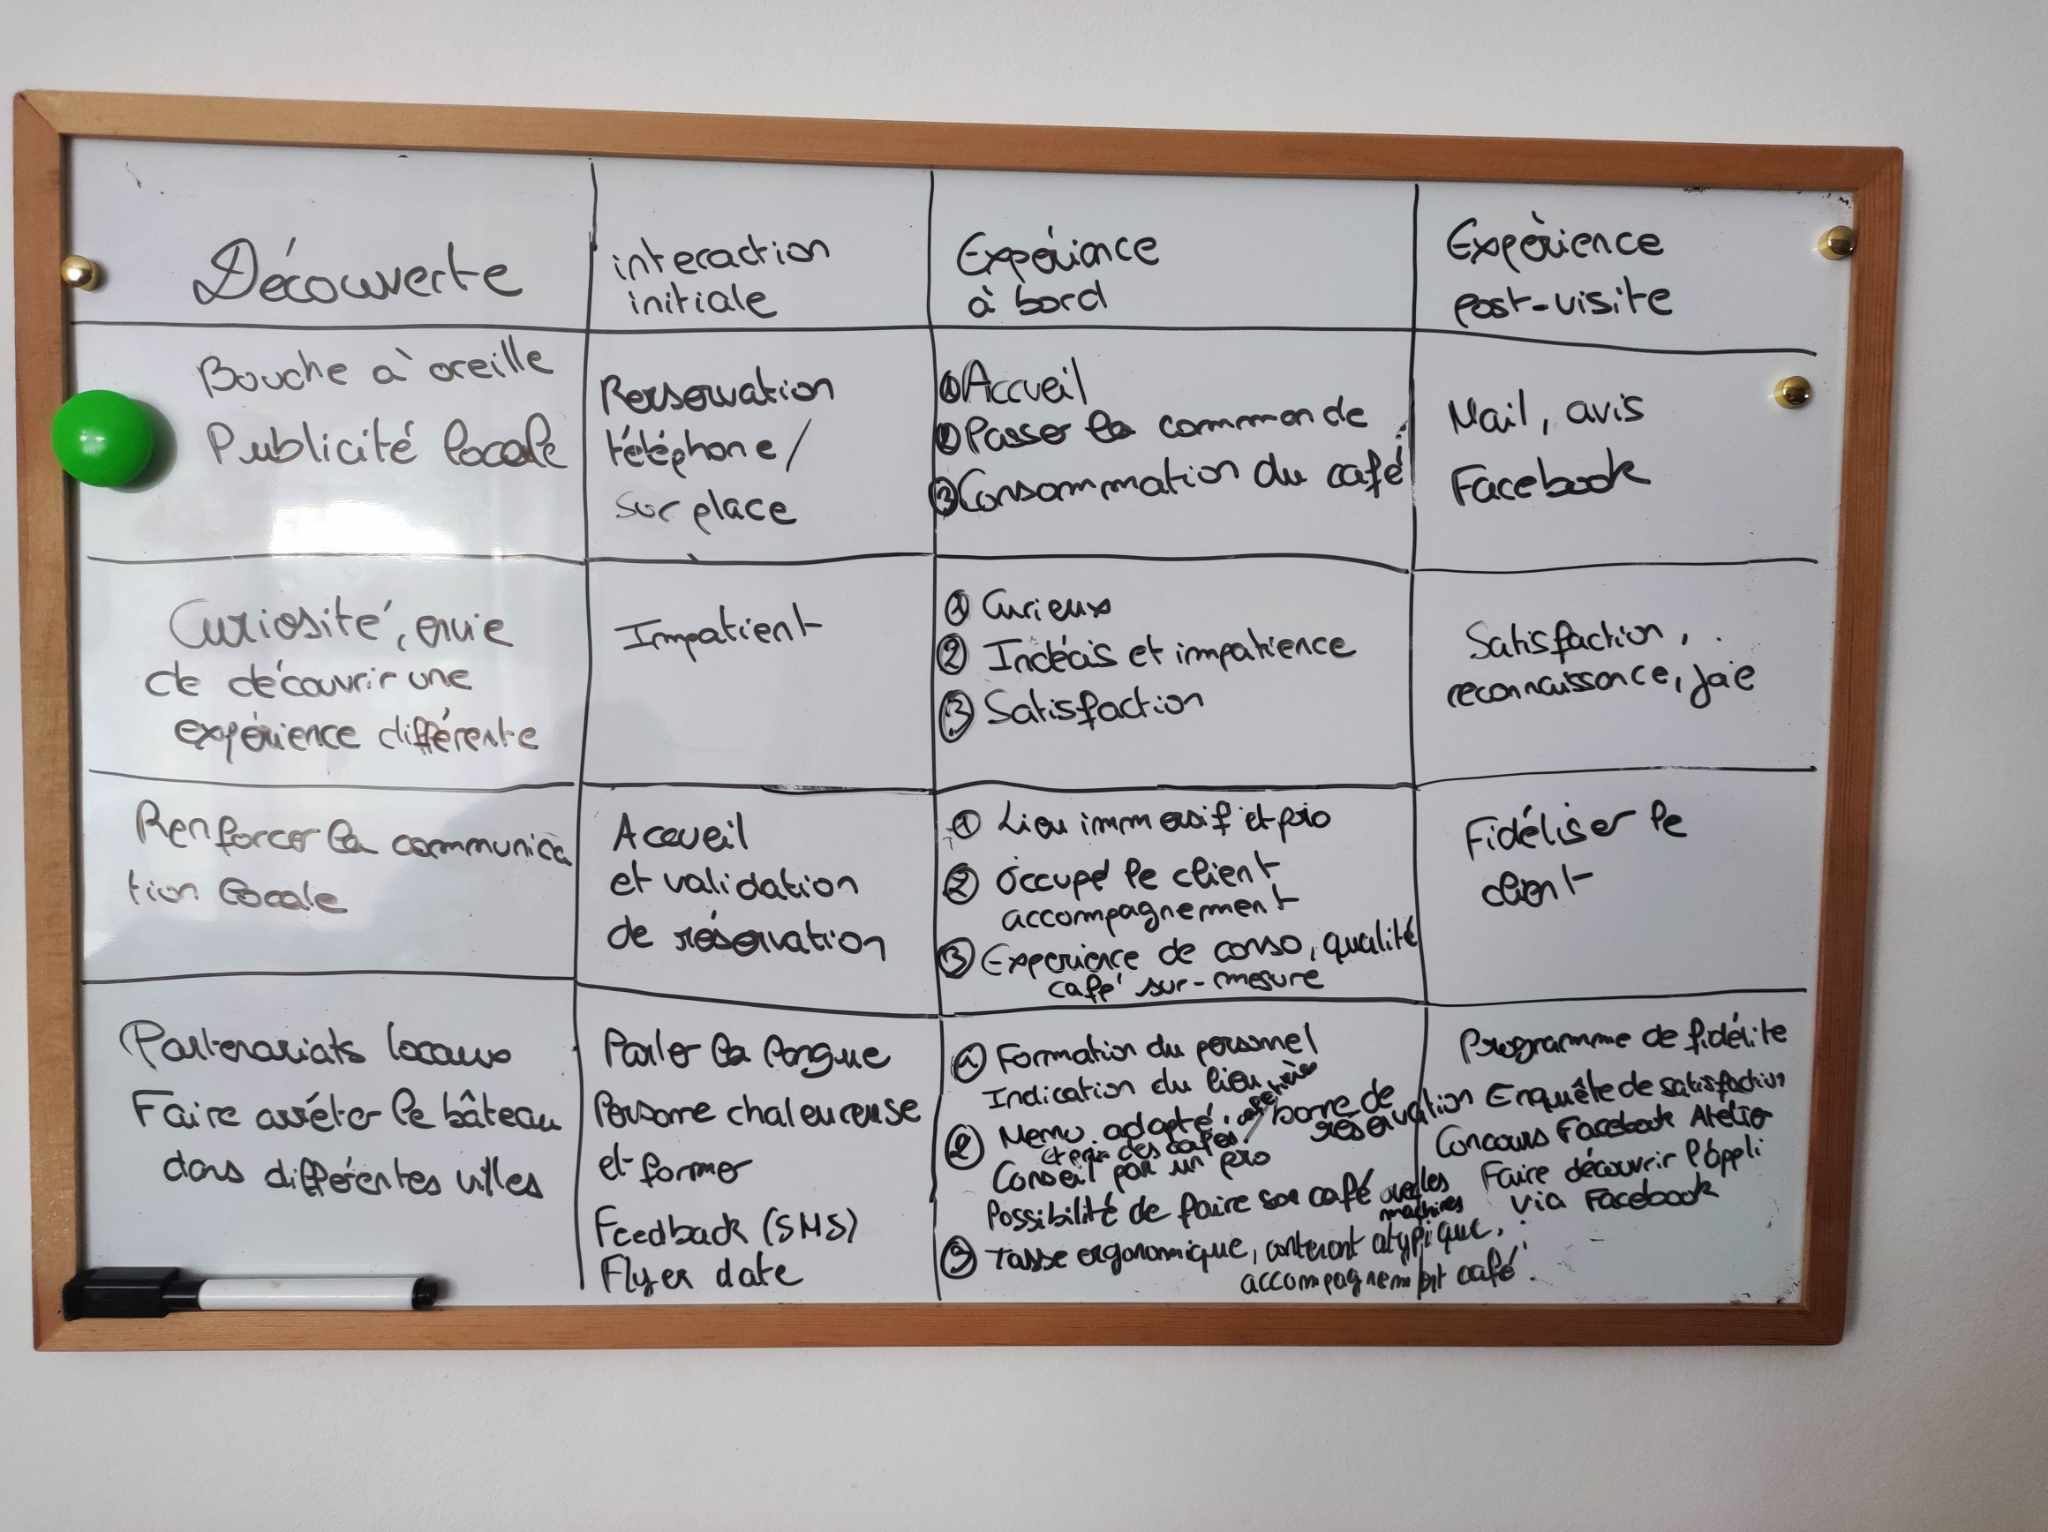 Découverte
interaction
initiale
Expériance
à bord
Expèrience
post-visite
Bouche à oreille
Publicité locale
Rerservation
téléphone/
sur place
① Accueil
② Passer la commande
③ Consommation du café
Mail, avis
Facebook
Curiosité, envie
de découvrir une
expérience différente
Impatient
① Curieux
② Indécis et impatience
③ Satisfaction
Satisfaction,
reconnaissance, joie
Renforcer la communica
tion locale
Acceuil
et validation
de réservation
① Lieu immersif et pro
② Occupé le client
accompagnement
③ Experience de conso, qualité
café sur-mesure
Fidéliser le
client
Partenariats locaux
Faire arréter le bâteau
dans différentes villes
Parler la langue
Personne chaleureuse
et former
Feedback (SMS)
Flyer date
① Formation du personnel
Indication du lieu
② Menu adapté, borne de
réservation
des cafés
Conseil par un pro
Possibilité de faire son café avec les
machines
③ Tasse ergonomique, contenant atypique,
accompagnement café.
Programme de fidélite
Enquête de satisfaction
Concours Facebook Atelier
Faire découvrir l'appli
via Facebook